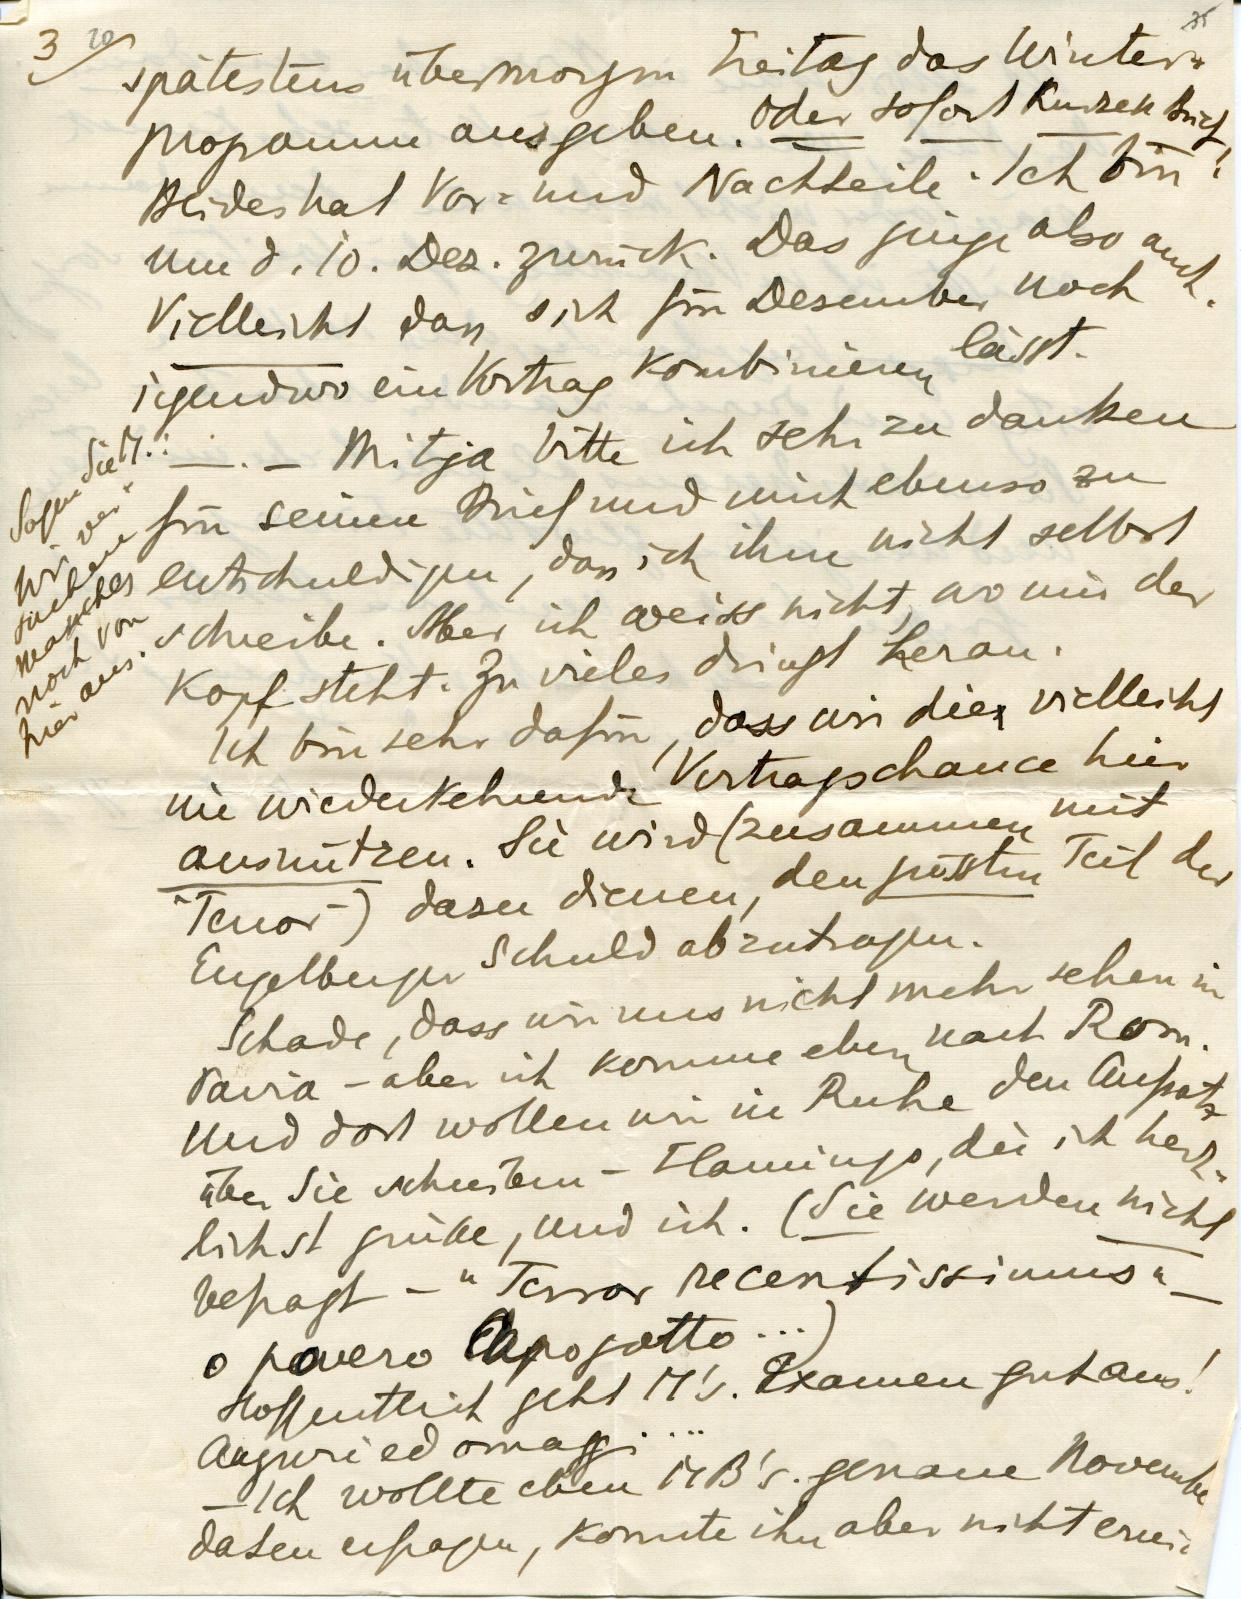 3
20
35
spätestens übermorgen Freitag das Winter=
programm ausgeben. Oder sofort kurzen Brief!
Beides hat Vor= und Nachteile. Ich bin
um d. 10. Dez. zurück. Das ginge also auch.
Vielleicht dass sich für Dezember noch
irgendwo ein Vortrag kombinieren lässt.
—.— Mitja bitte ich sehr zu danken
für seinen Brief und mich ebenso zu
entschuldigen, dass ich ihm nicht selbst
schreibe. Aber ich weiss nicht, wo mir der
Kopf steht. Zu vieles dringt heran.
Sagen Sie M.:
Wir ver=
suchen
manches
noch von
hier aus.
Ich bin sehr dafür, dass wir diex vielleicht
nie wiederkehrende Vortragschance hier
ausnützen. Sie wird (zusammen mit
"Terror") dazu dienen, den grössten Teil der
Engelberger Schuld abzutragen.
Schade, dass wir uns nicht mehr sehen in
Pavia – aber ich komme eben nach Rom.
Und dort wollen wir in Ruhe den Aufsatz
über Sie schreiben – Flamingo, die ich herz=
lichst grüße, und ich. (Sie werden nicht
gefragt – "Terror recentissimus" –
o povero Capogatto...)
Hoffentlich geht M's. Examen gut aus!
Auguri ed omaggi...
– Ich wollte eben MB's. genaue November
daten erfragen, konnte ihn aber nicht errei=